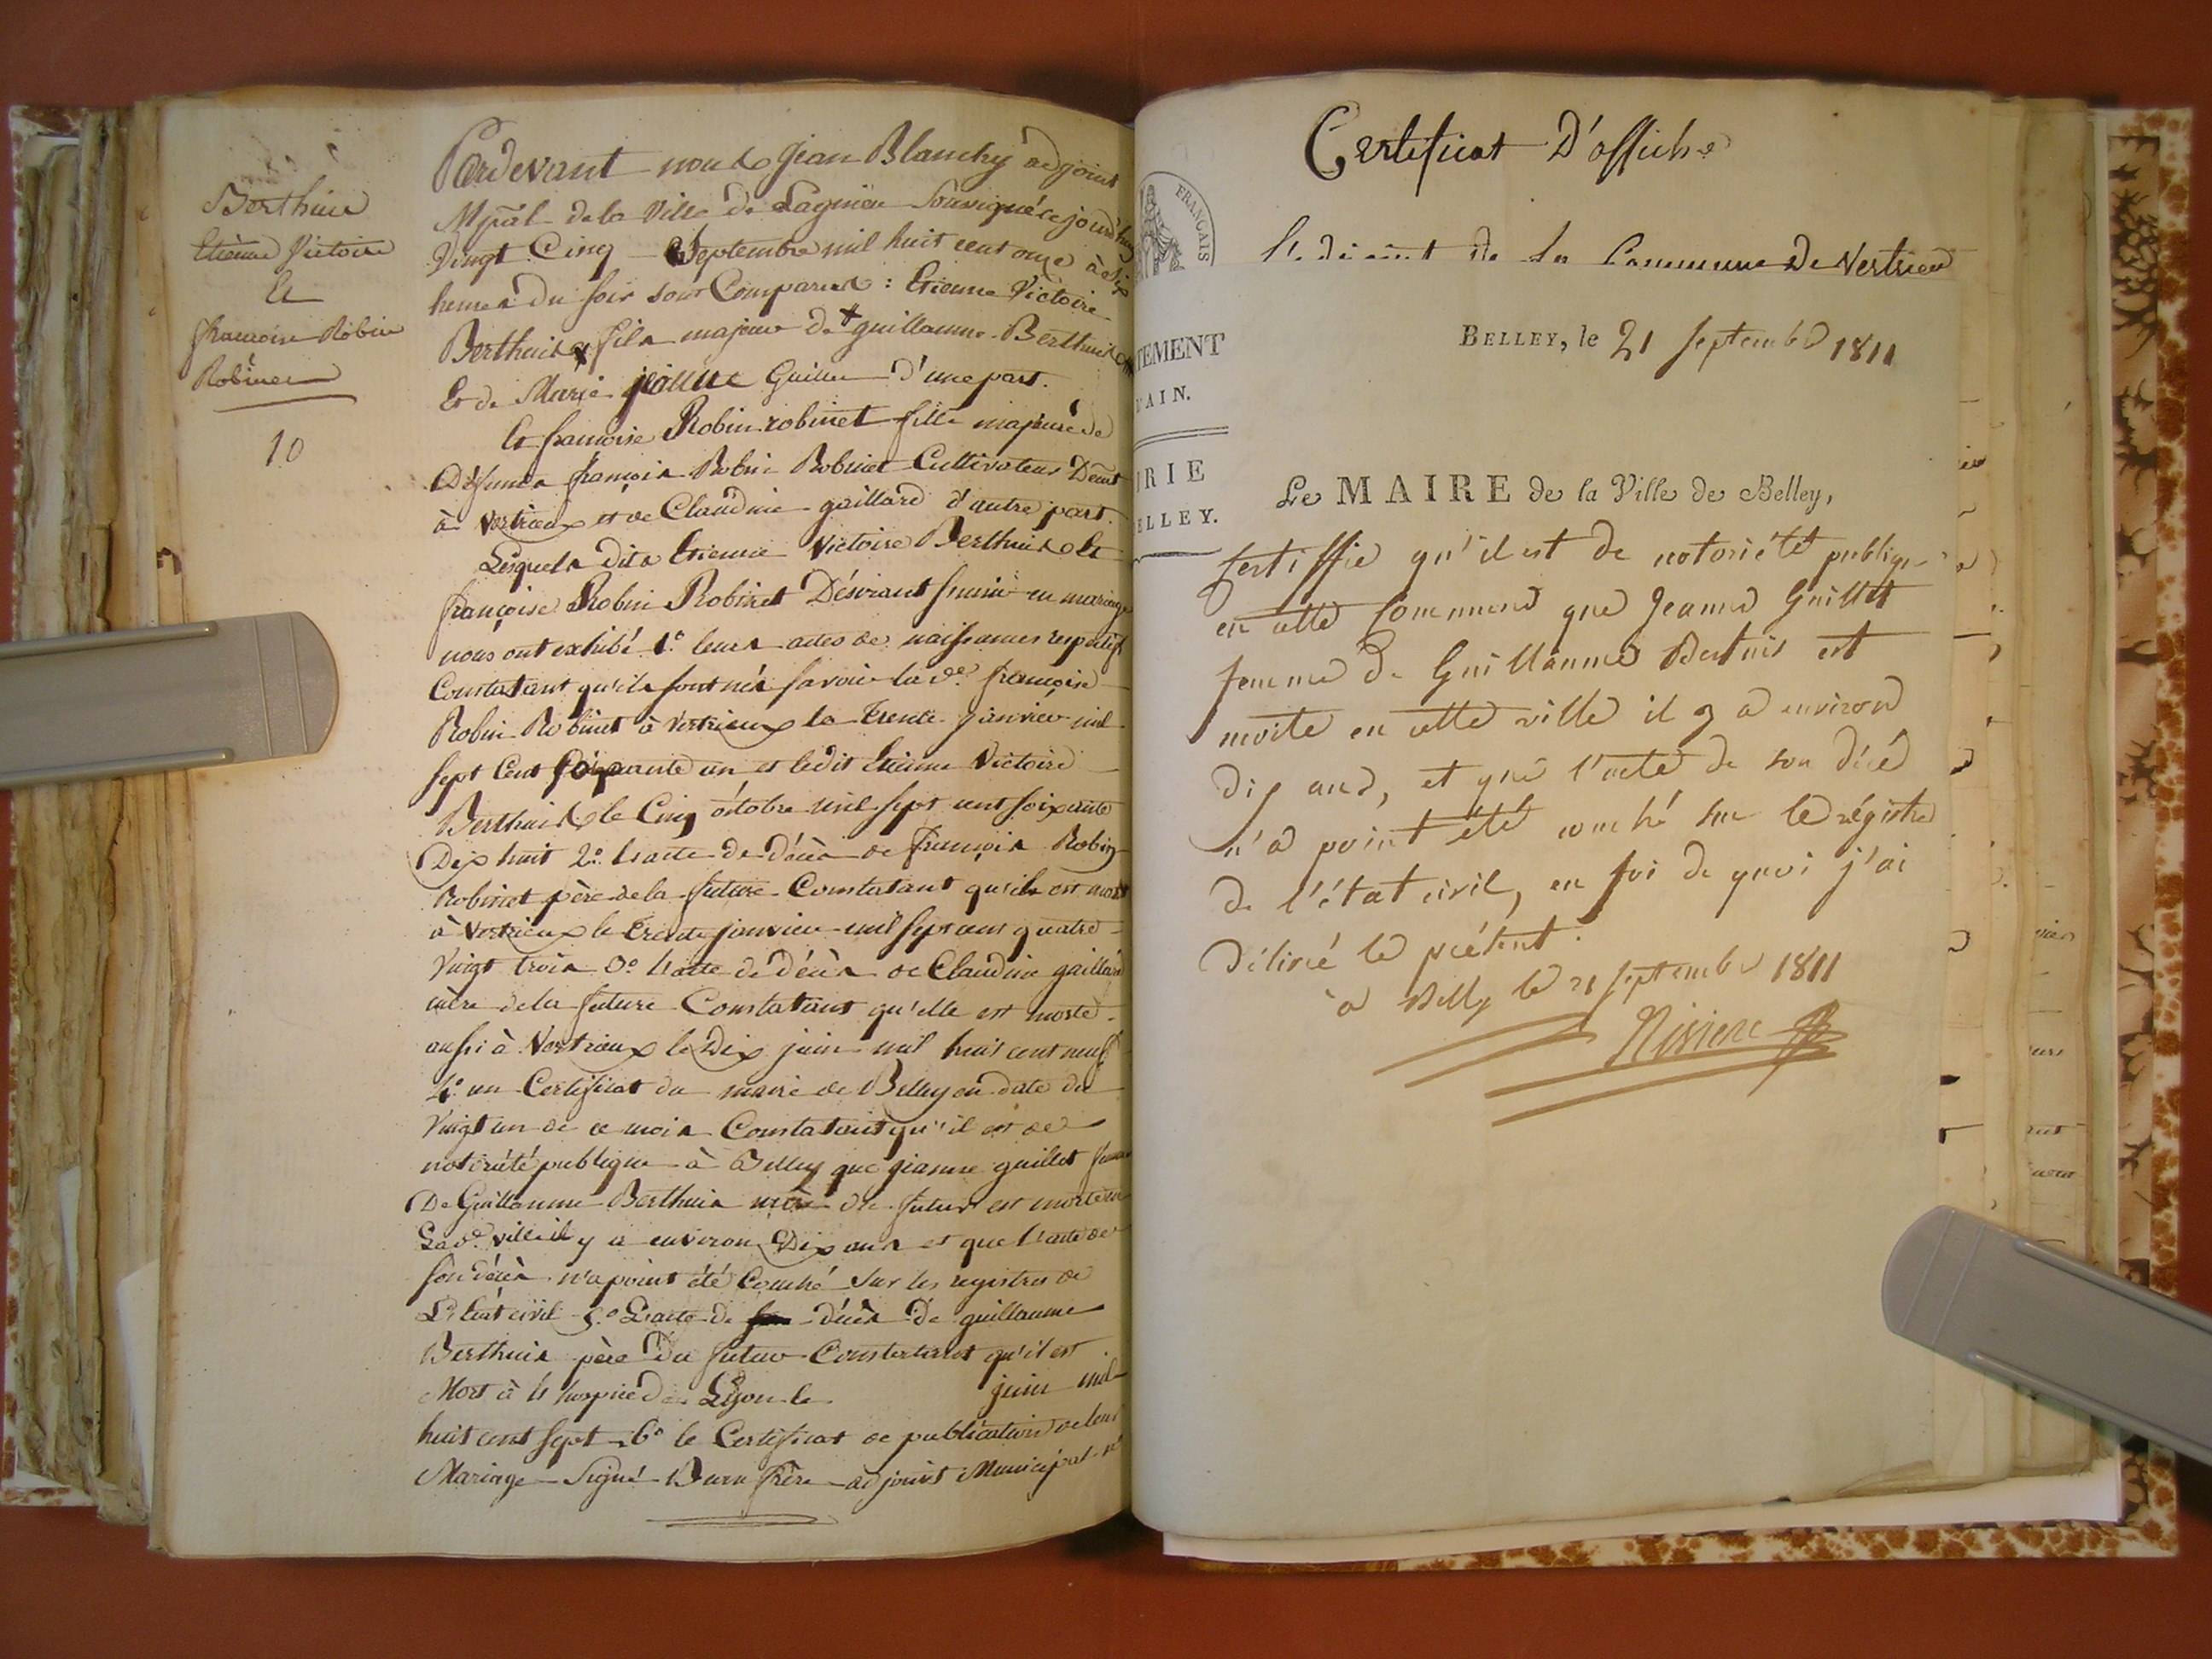 Berthuis
Etienne Victoire
Et
francoise Robin
Robinet
10
Pardevant nous Jean Blanchy adjoint
Mpal de la Ville de Lagnieu Soussigné ce jourd'hui
Vingt Cinq Septembre mil huit cent onze à six
heures du soir sont Comparus : Etienne Victoire
Berthuis fils majeur de guillaume Berthuis
Et de Marie jeanne Guillet d'une part.
Et francoise Robin robinet fille majeure de
Défunts françois Robin Robinet Cultivateur Demt
à Vertrieux et de Claudine gaillard d'autre part.
Lesquels dits Etienne Victoire Berthuis Et
françoise Robin Robinet Désirant s'unir en mariage
nous ont exhibé 1.° leurs actes de naissances respectifs
Constatant qu'ils sont nés savoir la de. françoise
Robin Robinet à Vertrieux le trente janvier mil
sept Cent soixante un et ledit Etienne Victoire
Berthuis le Cinq octobre mil sept cent soixante
Dix huit 2.° l'acte de décès de françois Robin
Robinet père de la future Constatant qu'il est mort
à Vertrieux le trente janvier mil sept cent quatre
Vingt trois 3.° L'acte de décès de Claudine gaillard
mère de la future Constatant qu'elle est morte
aussi à Vertrieux le Dix juin mil huit cent neuf
4.° un Certificat du maire de Belley en date du
Vingt un de ce mois Constatant qu'il est de
notoriété publique à Belley que jeanne guillet femme
De Guillaume Berthuis mère du futur est morte en
La de. ville il y a environ Dix ans et que l'acte de
son décès n'a point été Couché sur les registres de
L'état civil 5.° L'acte de décès de guillaume
Berthuis père du futur Constatant qu'il est
Mort à l'hospice de Lyon le juin mil
huit cent sept 6.° le Certificat de publication de leur
Mariage Signé frère adjoint Municipal
Certificat D'affiche
de la Commune De Vertrieu
FRANÇAIS
TEMENT
'AIN.
IRIE
ELLEY.
BELLEY, le 21 Septembre 1811
Le MAIRE de la Ville de Belley,
Certiffie qu'il est de notoriété publique
en cette Commune que Jeanne Guillet
femme de Guillaume Bertuis est
morte en cette ville il y a environ
dix ans, et que l'acte de son décé
n'a point été couché sur le régistre
de l'état civil, en foi de quoi j'ai
délivré le présent.
à Belley le 21 Septembre 1811